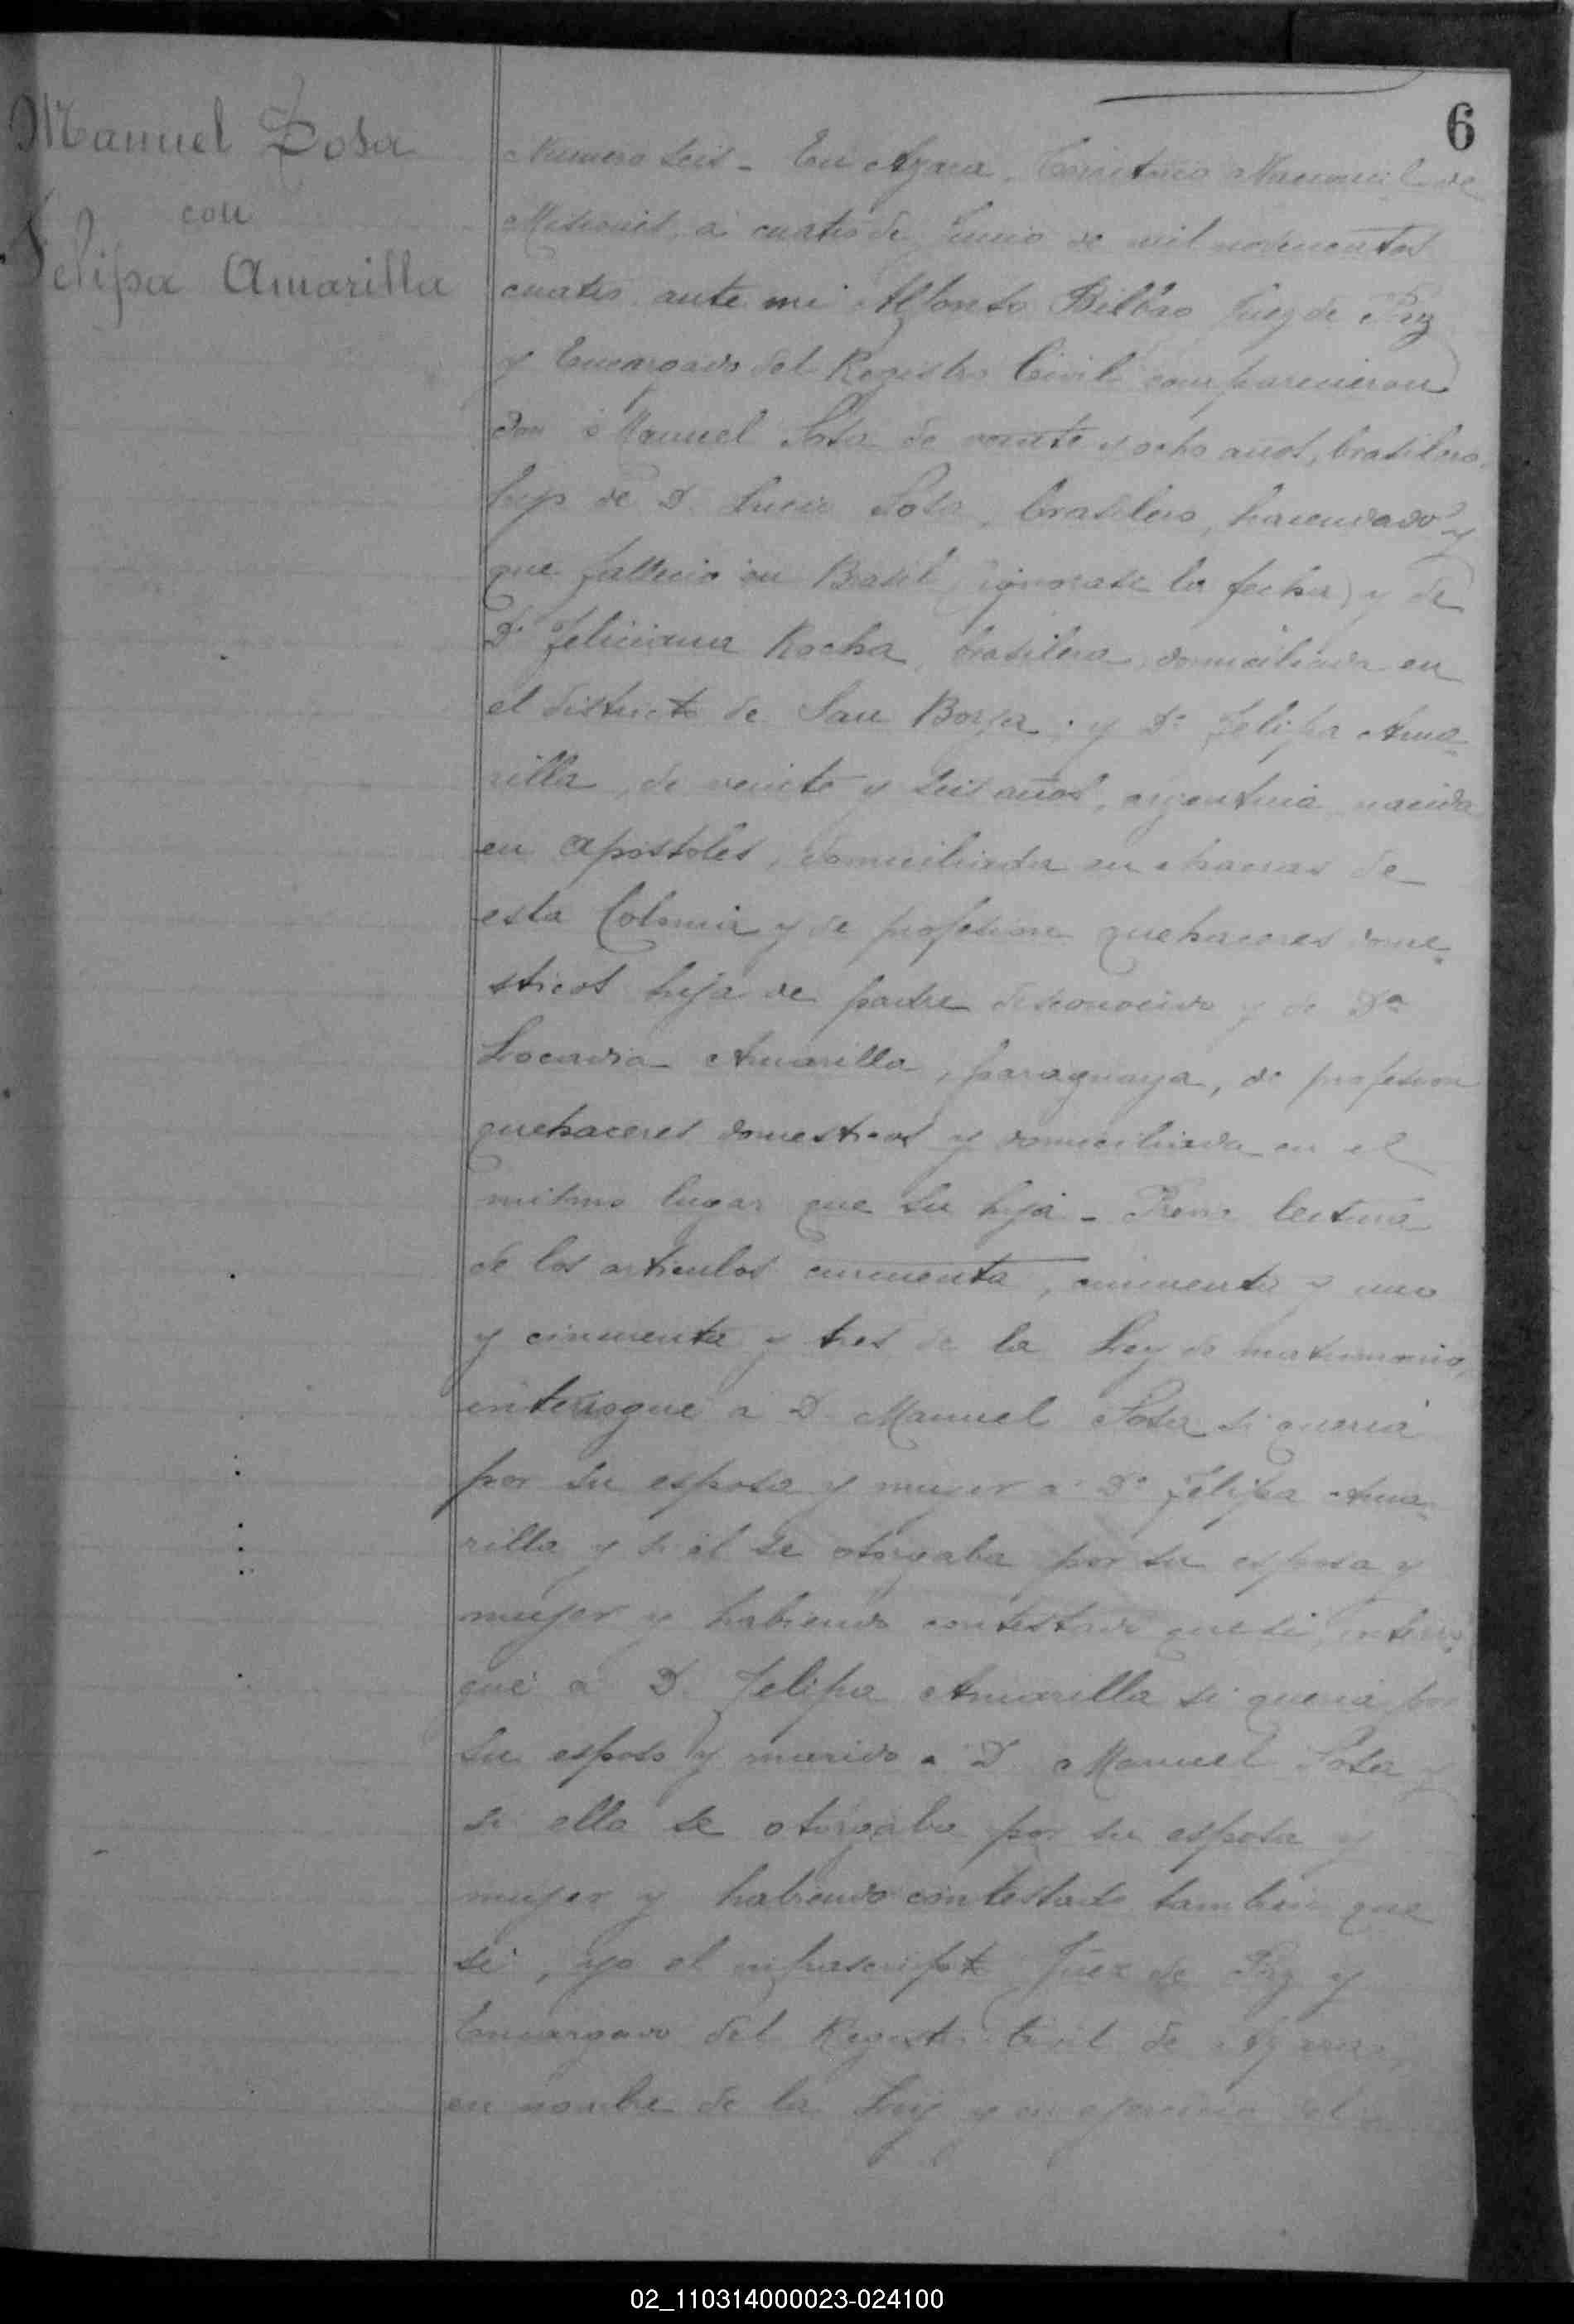 6
Manuel Sosa
con
Felipa Amarilla
Numero seis - En Azara, Territorio Nacional de
Misiones, a cuatro de Junio de mil novecientos
cuatro ante mi Alfonso Bilbao Juez de Paz
y Encargado del Registro Civil comparecieron
don Manuel Sosa de veinte y ocho años, brasilero,
hijo de D. Lucio Sosa, brasilero, hacendado y
que fallecio en Brasil (ignorase la fecha) y de
Dª Feliciana Rocha, brasilera, domiciliada en
el distrito de San Borja; y Dª Felipa Ama-
rilla, de veinte y seis años, argentina, nacida
en Apostoles, domiciliada en chacras de
esta Colonia y de profesion quehaceres dome-
sticos hija de padre desconocido y de Dª
Locadia Amarilla, paraguaya, de profesion
quehaceres domesticos y domiciliada en el
mismo lugar que su hija - Previa lectura
de los articulos cincuenta, cincuenta y uno
y cincuenta y tres de la Ley de matrimonio,
interrogué a D. Manuel Sosa si queria
por su esposa y mujer a Dª Felipa Ama-
rilla y si él se otorgaba por su esposa y
mujer y habiendo contestado que si, interro-
gué a D. Felipa Amarilla si queria por
su esposo y marido a D. Manuel Sosa y
si ella se otorgaba por su esposa y
mujer y habiendo contestado tambien que
si, yo el infrascripto Juez de Paz y
Encargado del Registro Civil de Azara,
en nombre de la Ley y en ejercicio del
02_110314000023-024100